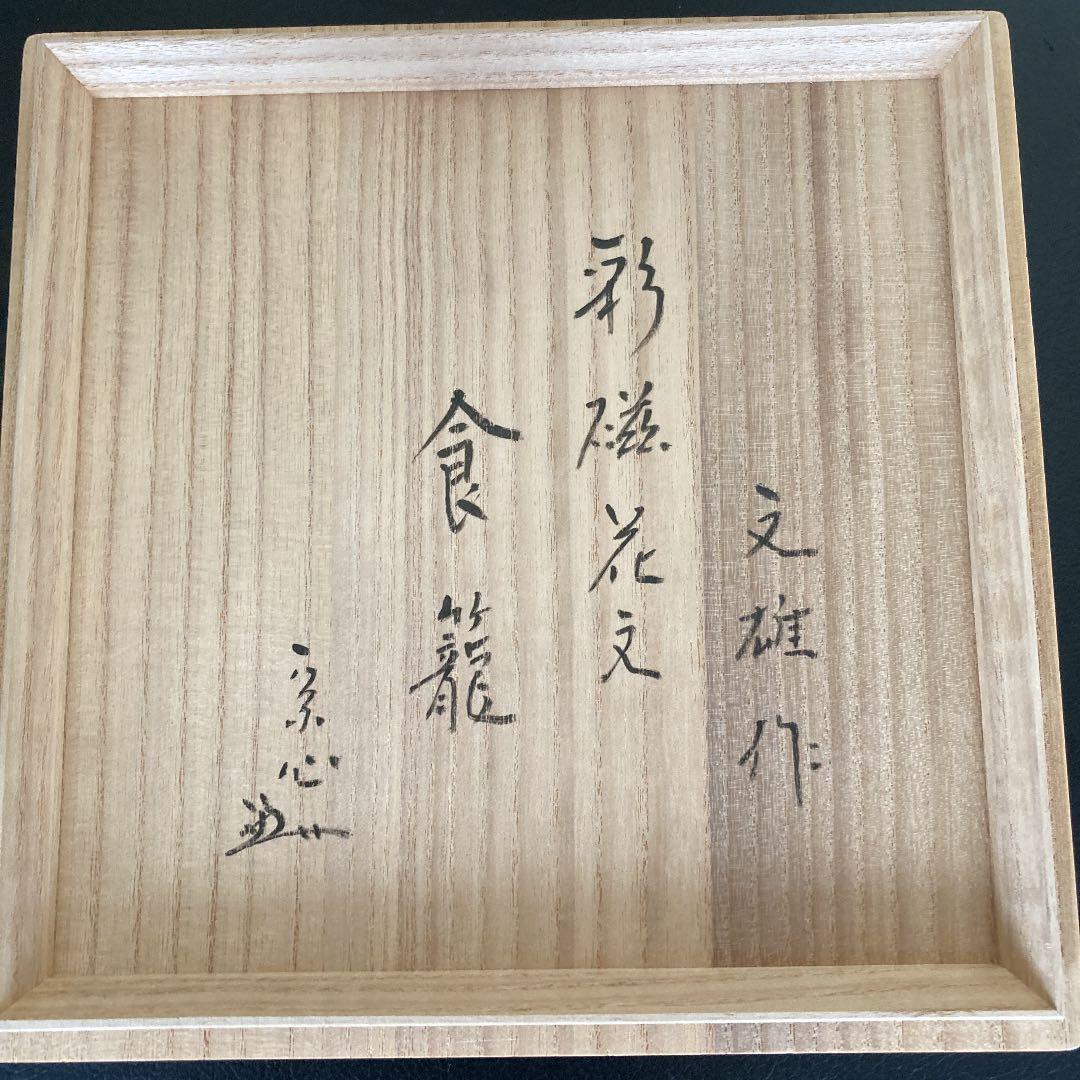 文雄作
彩磁花文
食籠
宗心